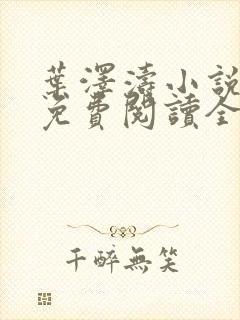 葉澤濤小說
免費閱讀全
千醉無笑